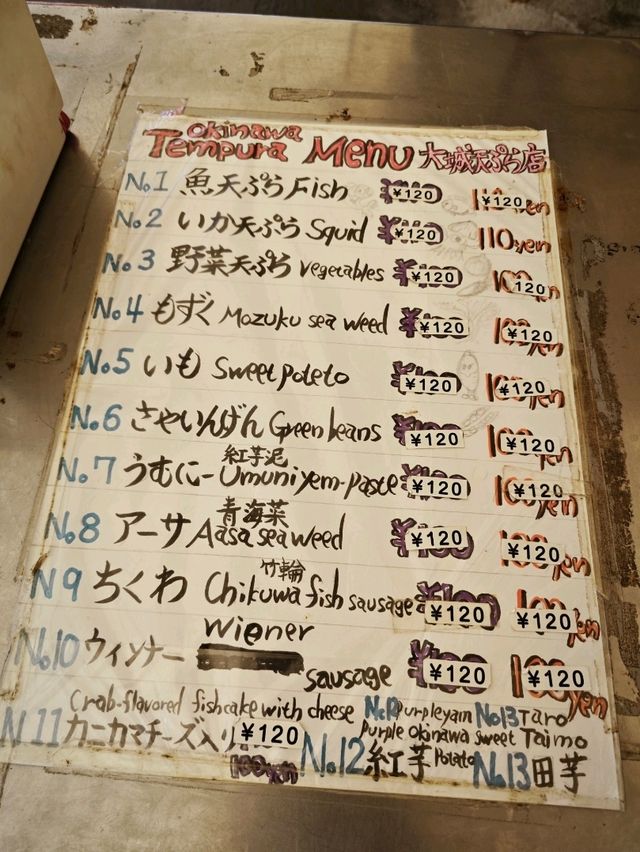 Okinawa
Tempura Menu 大城天ぷら店
No.1 魚天ぷら Fish ¥120 ¥120 yen
No.2 いか天ぷら Squid ¥120 110yen
No.3 野菜天ぷら vegetables ¥120 120 yen
No.4 もずく Mozuku sea weed ¥120 ¥120 yen
No.5 いも Sweet poteto ¥120 ¥120 yen
No.6 さやいんげん Green beans ¥120 ¥120 yen
紅芋泥
No.7 うむにー Umuni yem-paste ¥120 ¥120 yen
青海菜
No.8 アーサ Aasa sea weed ¥120 ¥120 yen
竹輪
N9 ちくわ Chikuwa fish sausage ¥120 ¥120 yen
Wiener
No.10 ウィンナー sausage ¥120 ¥120 yen
Crab-flavored fishcake with cheese No.12 purple yam No.13 Taro
purple okinawa sweet Taimo
N11 カニカマチーズ入り ¥120 No.12 紅芋 Potato No.13 田芋
100yen